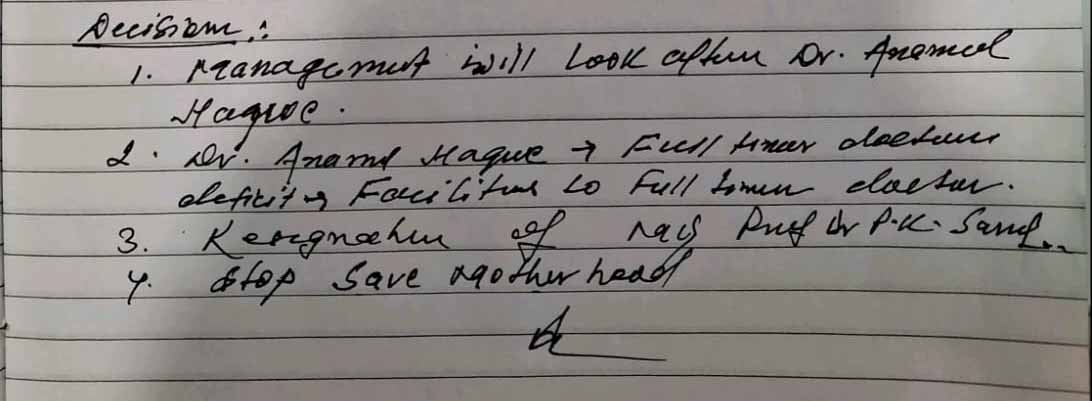 Decision:
1. Management will look after Dr. Anamul
Haque.
2. Dr. Anamul Haque → Full timer doctor
deficit → Facilities to Full timer doctor.
3. Resignation of Prof Dr P.K.
4. Stop Save Motherhood